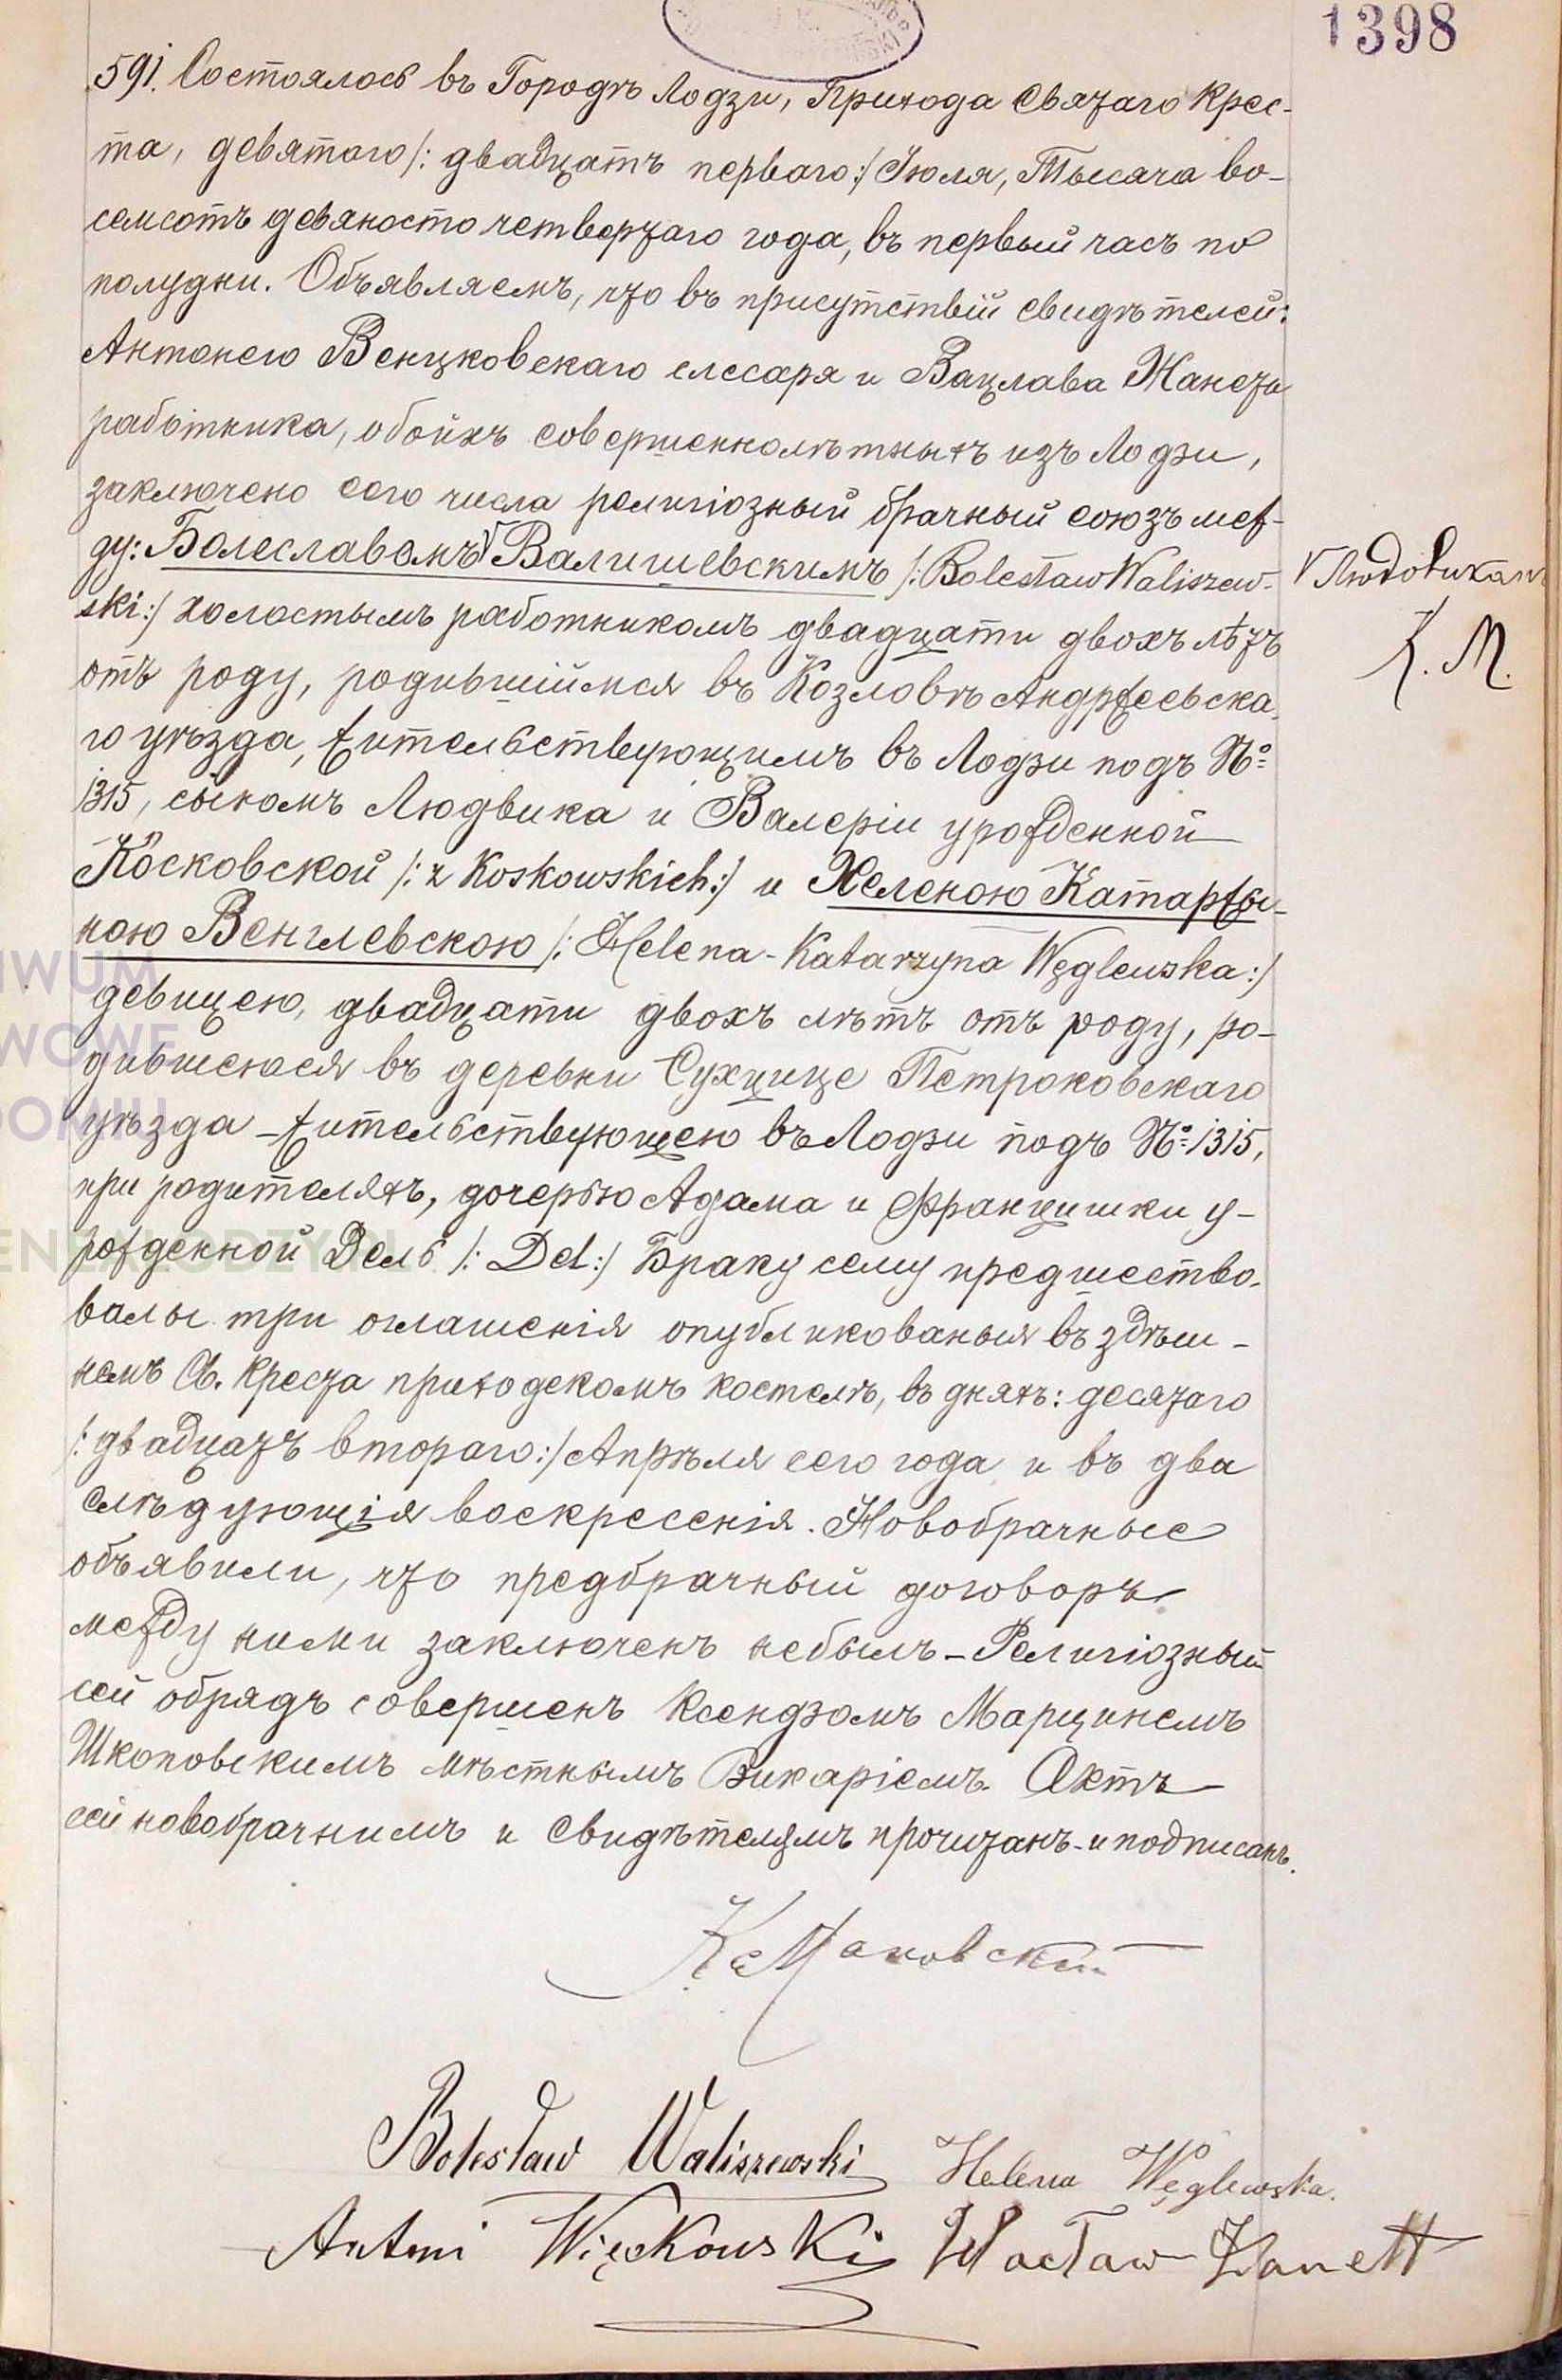 1398
591. Состоялось въ Городѣ Лодзи, Прихода Святаго Крес-
та, девятаго /: двадцать перваго :/ Іюля, Тысяча во-
семсотъ девяносто четвертаго года, въ первый часъ по
полудни. Объявляемъ, что въ присутствіи свидѣтелей:
Антонего Венцковскаго слесаря и Вацлава Жанеты
работника, обоихъ совершеннолѣтныхъ изъ Лодзи,
заключено сего числа религіозный брачный союзъ меж-
ду: Болеславомъ V Валишевскимъ /: Bolesław Waliszew-
V Людовикомъ
ski :/ холостымъ работникомъ двадцати двохъ лѣтъ
К. М.
отъ роду, родившіймся въ Козловѣ Андржеевска-
го уѣзда, жительствующимъ въ Лодзи подъ №
1315, сыномъ Людвика и Валеріи урожденной
Косковской /: z Koskowskich :/ и Хеленою Катаржы-
ною Венглевскою /: Helena-Katarzyna Węglewska :/
девицею, двадцати двохъ лѣтъ отъ роду, ро-
дившеюся въ деревни Сухцице Петроковскаго
уѣзда - жительствующею въ Лодзи подъ № 1315,
при родителяхъ, дочерью Адама и Францишки у-
рожденной Дель /: Del :/ Браку сему предшество-
валы три оглашенія опубликованыя въ здѣш-
немъ Св. Креста приходскомъ костелѣ, въ дняхъ: десятаго
/: двадцать втораго :/ Апрѣля сего года и въ два
слѣдующія воскресенія. Новобрачные
объявили, что предбрачный договоръ
между ними заключенъ небылъ - Религіозный
сей обрядъ совершенъ Ксендзомъ Марцинемъ
Шкоповскимъ мѣстнымъ Викаріемъ. Актъ
сей новобрачнимъ и свидѣтелямъ прочитанъ - и подписанъ.
К. Маковскій
Bolesław Waliszewski Helena Węglewska.
Antoni Więckowski Wacław Żanett